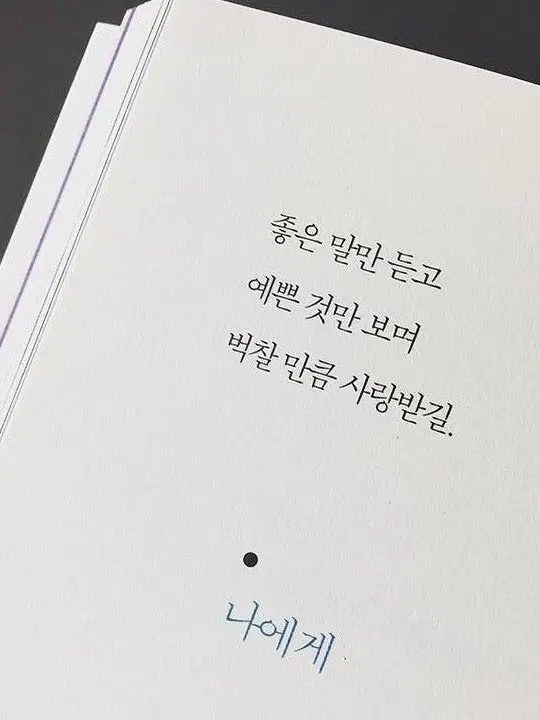 좋은 말만 듣고
예쁜 것만 보며
벅찰 만큼 사랑받길.
나에게